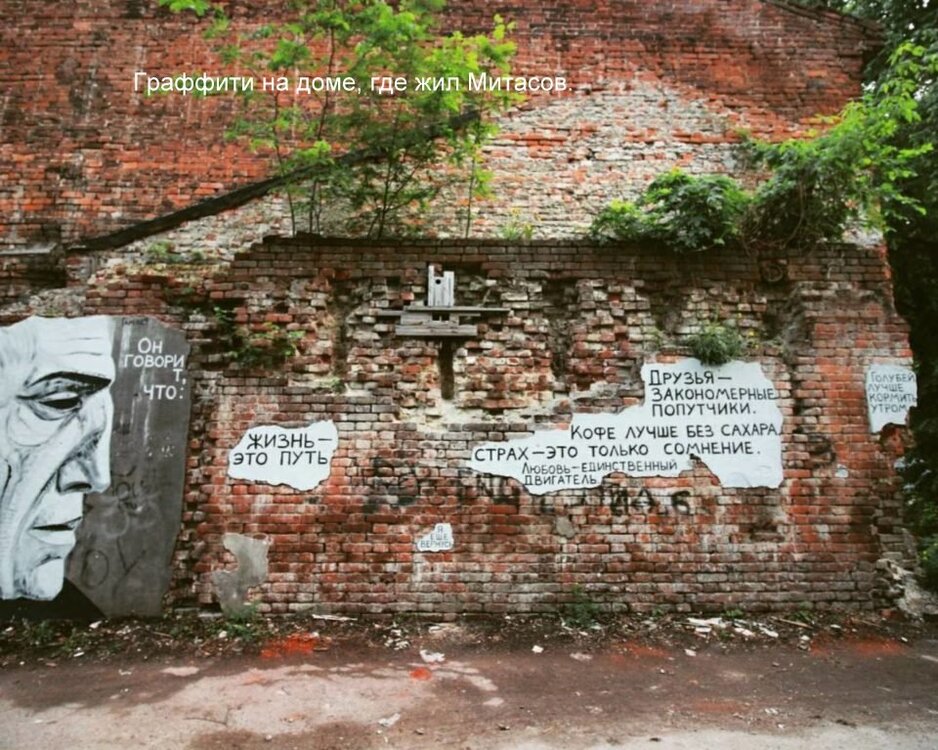 Граффити на доме, где жил Митасов.
Он
говори
т,
что:
Жизнь —
это путь
Друзья —
закономерные
попутчики.
Кофе лучше без сахара,
страх — это только сомнение.
Любовь — единственный
двигатель.
Голубей
лучше
кормить
утром
Я
ещё
вернусь